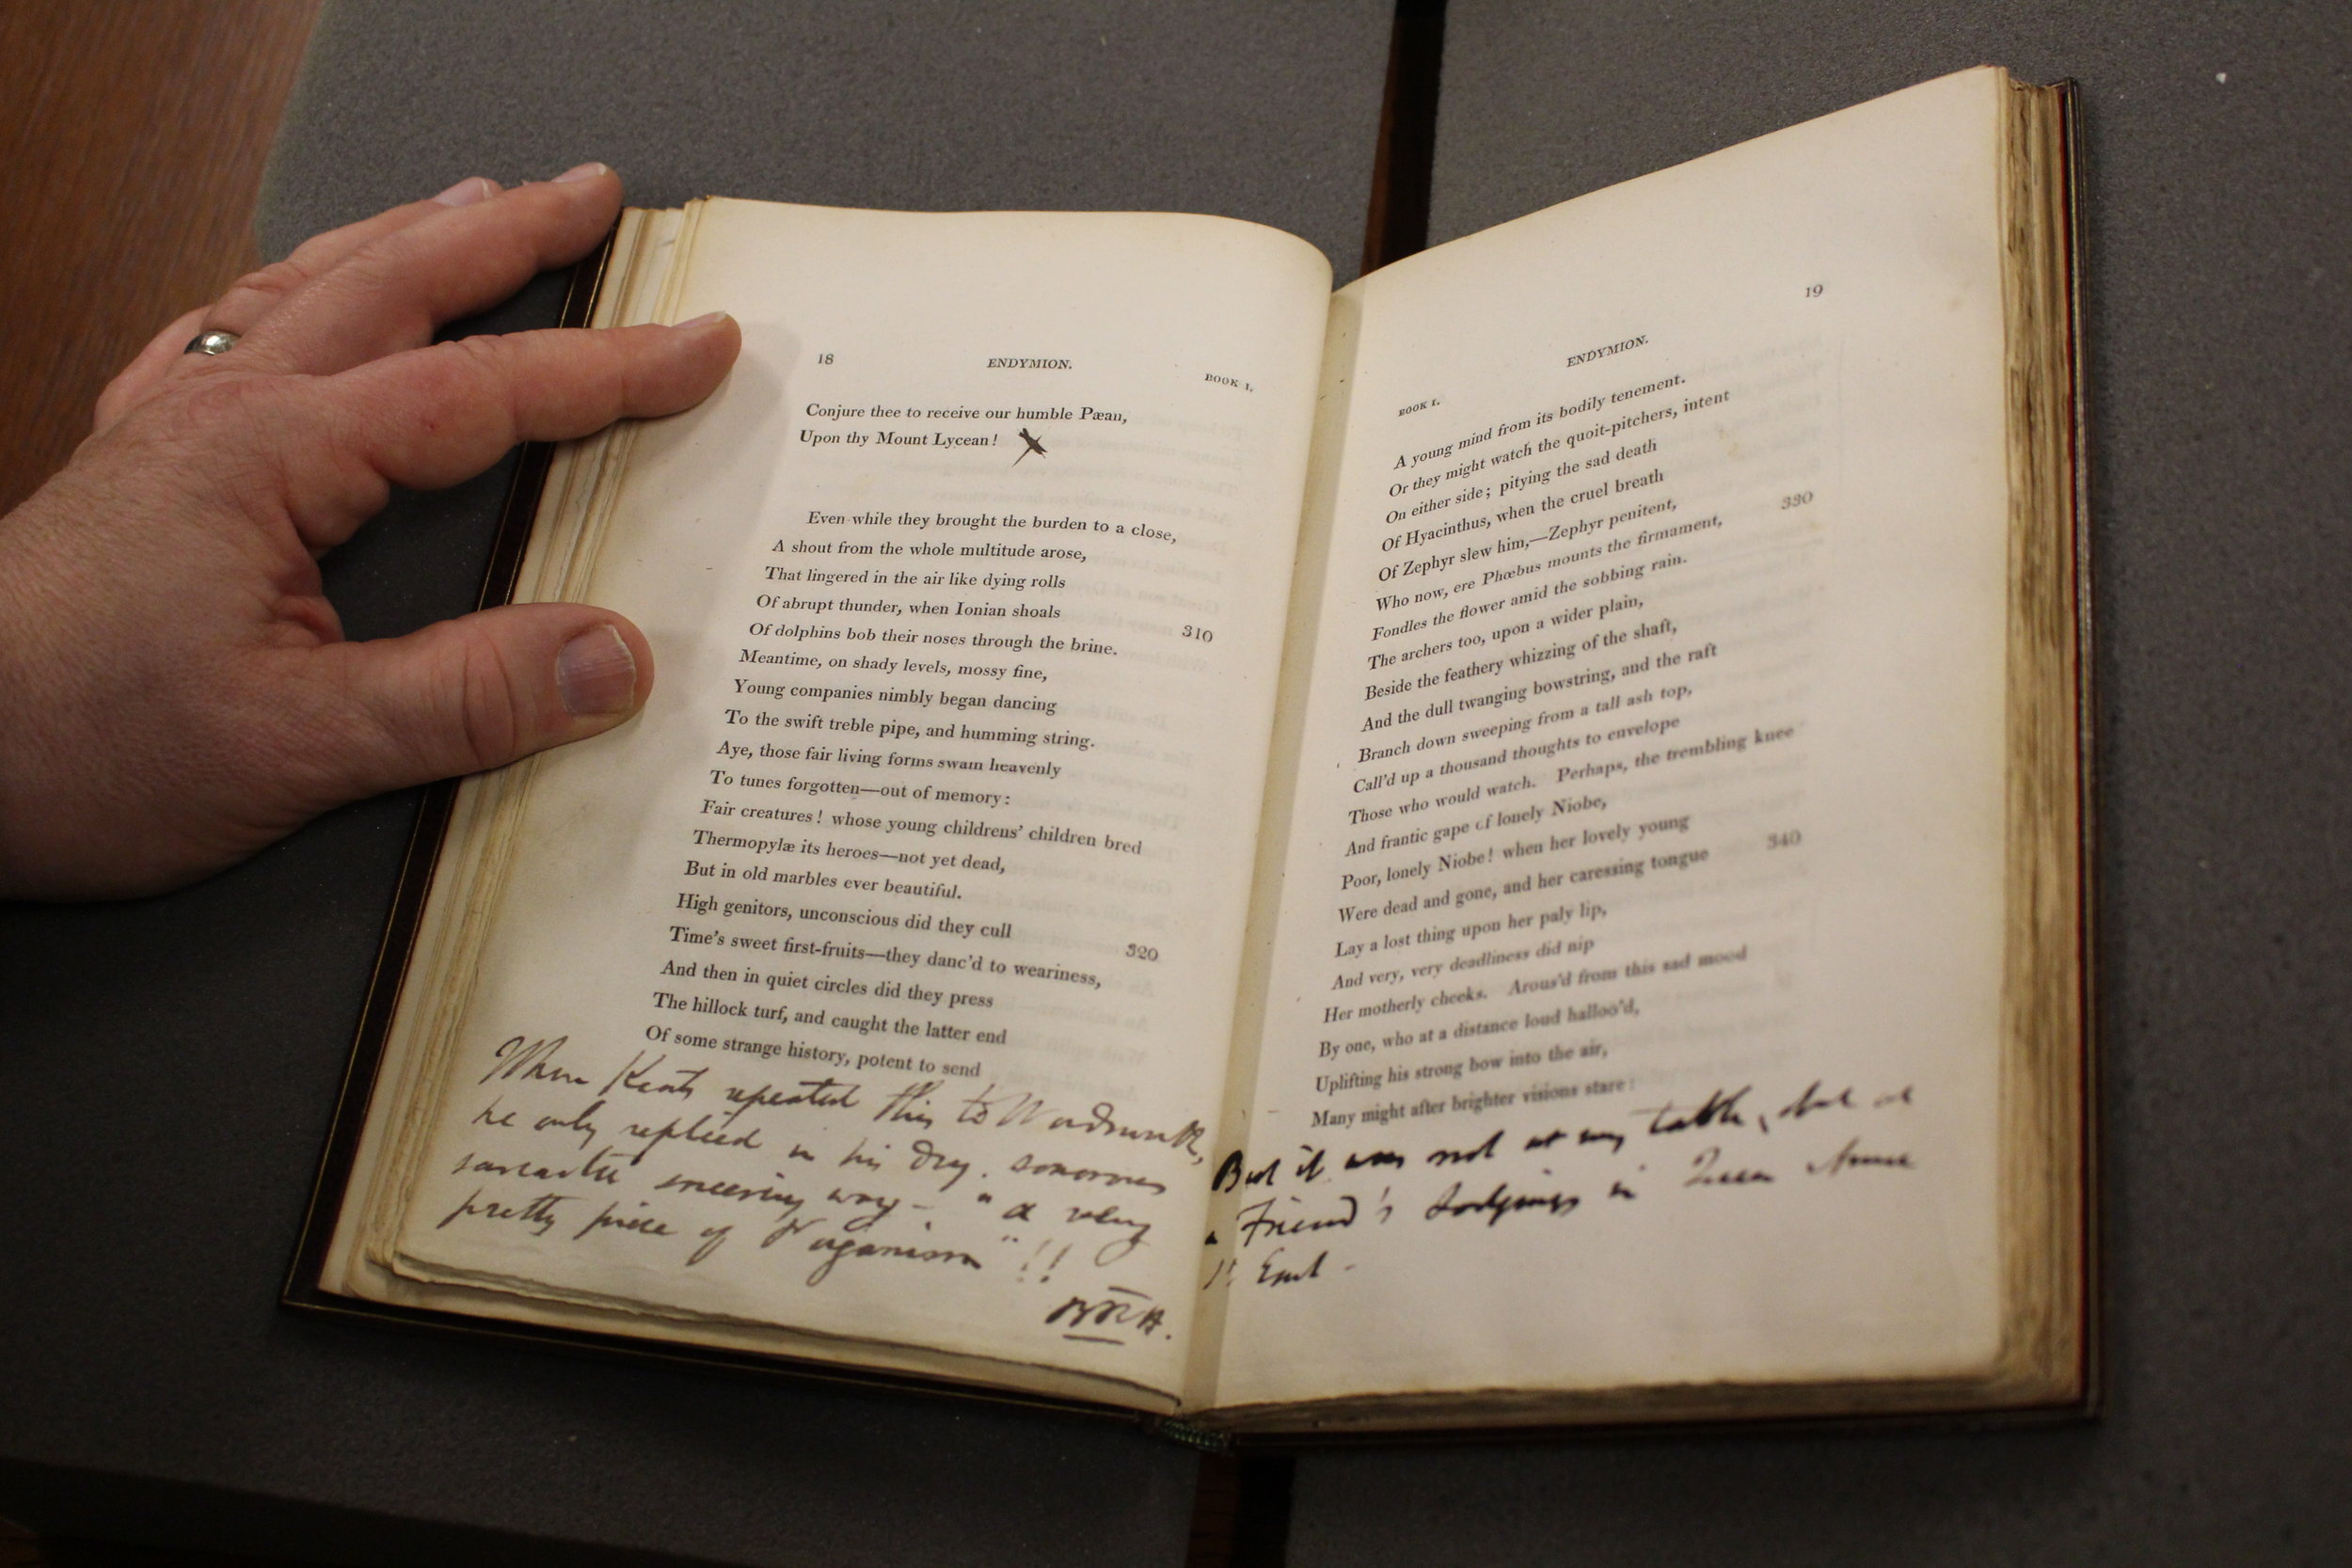 18 ENDYMION. BOOK I.
Conjure thee to receive our humble Pæan,
Upon thy Mount Lycean!
Even while they brought the burden to a close,
A shout from the whole multitude arose,
That lingered in the air like dying rolls
Of abrupt thunder, when Ionian shoals
310
Of dolphins bob their noses through the brine.
Meantime, on shady levels, mossy fine,
Young companies nimbly began dancing
To the swift treble pipe, and humming string.
Aye, those fair living forms swam heavenly
To tunes forgotten—out of memory:
Fair creatures! whose young childrens' children bred
Thermopylæ its heroes—not yet dead,
But in old marbles ever beautiful.
High genitors, unconscious did they cull
320
Time's sweet first-fruits—they danc'd to weariness,
And then in quiet circles did they press
The hillock turf, and caught the latter end
Of some strange history, potent to send
When Keats repeated this to Wordsworth,
he only replied in his dry. sonorous
sarcastic sneering way— "a very
pretty piece of Paganism"!!
BRH.
19
BOOK I. ENDYMION.
A young mind from its bodily tenement.
Or they might watch the quoit-pitchers, intent
On either side; pitying the sad death
Of Hyacinthus, when the cruel breath
Of Zephyr slew him,—Zephyr penitent,
330
Who now, ere Phœbus mounts the firmament,
Fondles the flower amid the sobbing rain.
The archers too, upon a wider plain,
Beside the feathery whizzing of the shaft,
And the dull twanging bowstring, and the raft
Branch down sweeping from a tall ash top,
Call'd up a thousand thoughts to envelope
Those who would watch. Perhaps, the trembling knee
And frantic gape of lonely Niobe,
Poor, lonely Niobe! when her lovely young
340
Were dead and gone, and her caressing tongue
Lay a lost thing upon her paly lip,
And very, very deadliness did nip
Her motherly cheeks. Arous'd from this sad mood
By one, who at a distance loud halloo'd,
Uplifting his strong bow into the air,
Many might after brighter visions stare:
But it was not at my table, but at
a Friend's Lodgings in Queen Anne
St East -